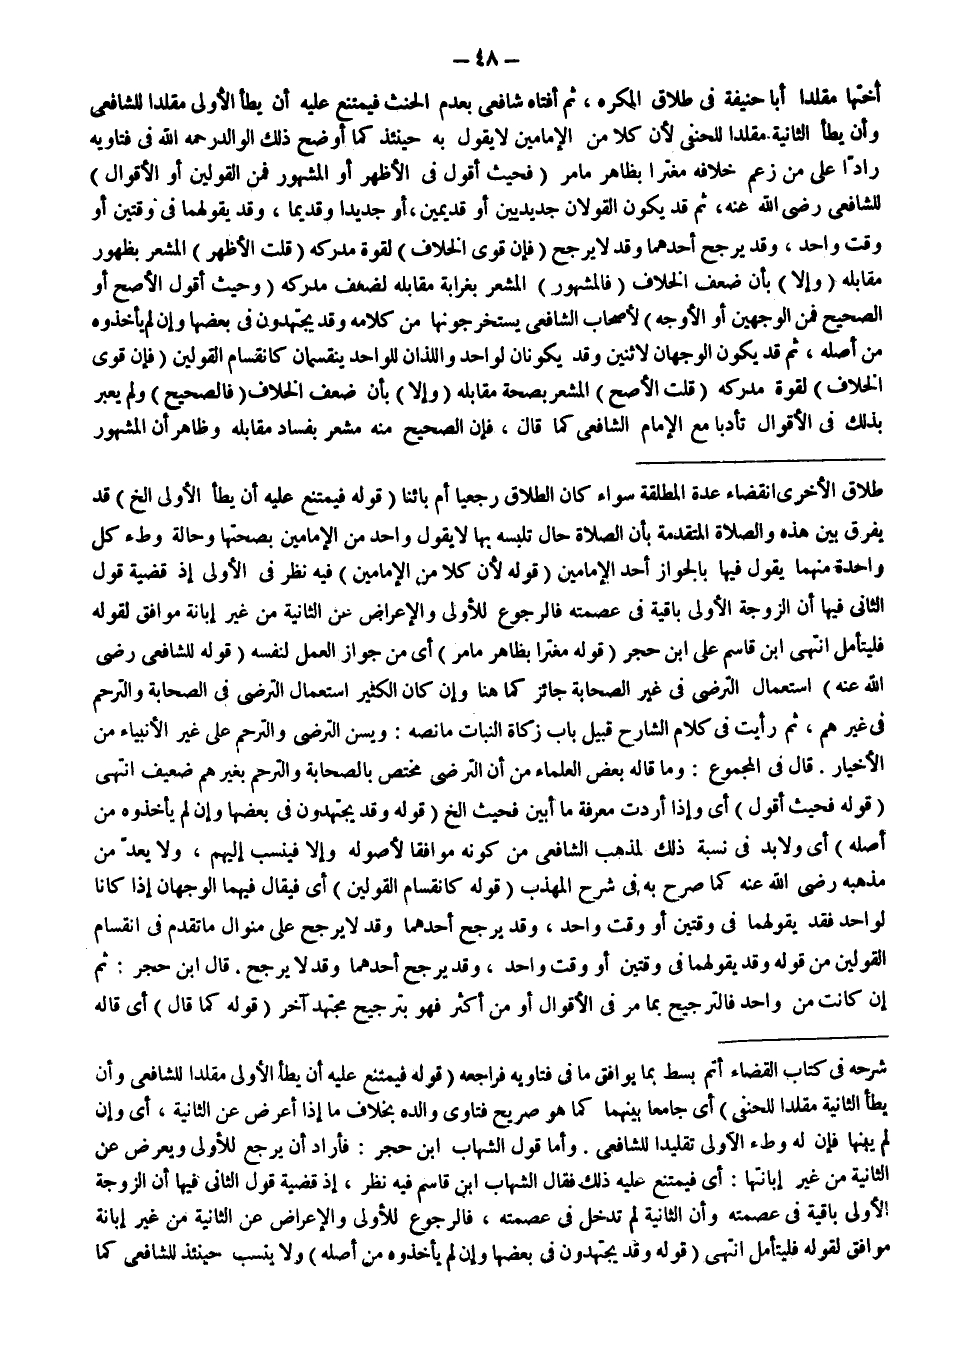 – ٤٨ –
أختها مقلدا أبا حنيفة فى طلاق المكره ، ثم أفتاه شافعى بعدم الحنث فيمتنع عليه أن يطأ الأولى مقلدا للشافعى
وأن يطأ الثانية مقلدا للحنفى لأن كلا من الإمامين لايقول به حينئذ كما أوضح ذلك الوالد رحمه الله فى فتاويه
رادّا على من زعم خلافه مغترا بظاهر مامر ( فحيث أقول فى الأظهر أو المشهور فمن القولين أو الأقوال )
للشافعى رضى الله عنه، ثم قد يكون القولان جديدين أو قديمين، أو جديدا وقديما ، وقد يقولهما فى وقتين أو
وقت واحد ، وقد يرجح أحدهما وقد لايرجح ( فإن قوى الخلاف ) لقوة مدركه ( قلت الأظهر ) المشعر بظهور
مقابله ( وإلا ) بأن ضعف الخلاف ( فالمشهور ) المشعر بغرابة مقابله لضعف مدركه ( وحيث أقول الأصح أو
الصحيح فمن الوجهين أو الأوجه ) لأصحاب الشافعى يستخرجونها من كلامه وقد يجتهدون فى بعضها وإن لم يأخذوه
من أصله ، ثم قد يكون الوجهان لاثنين وقد يكونان لواحد واللذان للواحد ينقسمان كانقسام القولين ( فإن قوى
الخلاف ) لقوة مدركه ( قلت الأصح ) المشعر بصحة مقابله ( وإلا ) بأن ضعف الخلاف ( فالصحيح ) ولم يعبر
بذلك فى الأقوال تأدبا مع الإمام الشافعى كما قال ، فإن الصحيح منه مشعر بفساد مقابله وظاهر أن المشهور
طلاق الأخرى انقضاء عدة المطلقة سواء كان الطلاق رجعيا أم بائنا ( قوله فيمتنع عليه أن يطأ الأولى الخ ) قد
يفرق بين هذه والصلاة المتقدمة بأن الصلاة حال تلبسه بها لايقول واحد من الإمامين بصحتها وحالة وطء كل
واحدة منهما يقول فيها بالجواز أحد الإمامين ( قوله لأن كلا من الإمامين ) فيه نظر فى الأولى إذ قضية قول
الثانى فيها أن الزوجة الأولى باقية فى عصمته فالرجوع للأولى والإعراض عن الثانية من غير إبانة موافق لقوله
فليتأمل انتهى ابن قاسم على ابن حجر ( قوله مغترا بظاهر مامر ) أى من جواز العمل لنفسه ( قوله للشافعى رضى
الله عنه ) استعمال الترضى فى غير الصحابة جائز كما هنا وإن كان الكثير استعمال الترضى فى الصحابة والترحم
فى غير هم ، ثم رأيت فى كلام الشارح قبيل باب زكاة النبات مانصه : ويسن الترضى والترحم على غير الأنبياء من
الأخيار . قال فى المجموع : وما قاله بعض العلماء من أن الترضى مختص بالصحابة والترحم بغير هم ضعيف انتهى
( قوله فحيث أقول ) أى وإذا أردت معرفة ما أبين فحيث الخ ( قوله وقد يجتهدون فى بعضها وإن لم يأخذوه من
أصله ) أى ولابد فى نسبة ذلك لمذهب الشافعى من كونه موافقا لأصوله وإلا فينسب إليهم ، ولا يعدّ من
مذهبه رضى الله عنه كما صرح به فى شرح المهذب ( قوله كانقسام القولين ) أى فيقال فيهما الوجهان إذا كانا
لواحد فقد يقولهما فى وقتين أو وقت واحد ، وقد يرجح أحدهما وقد لايرجح على منوال ماتقدم فى انقسام
القولين من قوله وقد يقولهما فى وقتين أو وقت واحد ، وقد يرجح أحدهما وقد لا يرجح . قال ابن حجر : ثم
إن كانت من واحد فالترجيح بما مر فى الأقوال أو من أكثر فهو بترجيح مجتهد آخر ( قوله كما قال ) أى قاله
شرحه فى كتاب القضاء أتم بسط بما يوافق ما فى فتاويه فراجعه ( قوله فيمتنع عليه أن يطأ الأولى مقلدا للشافعى وأن
يطأ الثانية مقلدا للحنفى ) أى جامعا بينهما كما هو صريح فتاوى والده بخلاف ما إذا أعرض عن الثانية ، أى وإن
لم يبنها فإن له وطء الأولى تقليدا للشافعى . وأما قول الشهاب ابن حجر : فأراد أن يرجع للأولى ويعرض عن
الثانية من غير إبانتها : أى فيمتنع عليه ذلك فقال الشهاب ابن قاسم فيه نظر ، إذ قضية قول الثانى فيها أن الزوجة
الأولى باقية فى عصمته وأن الثانية لم تدخل فى عصمته ، فالرجوع للأولى والإعراض عن الثانية من غير إبانة
موافق لقوله فليتأمل انتهى ( قوله وقد يجتهدون فى بعضها وإن لم يأخذوه من أصله ) ولا ينسب حينئذ للشافعى كما